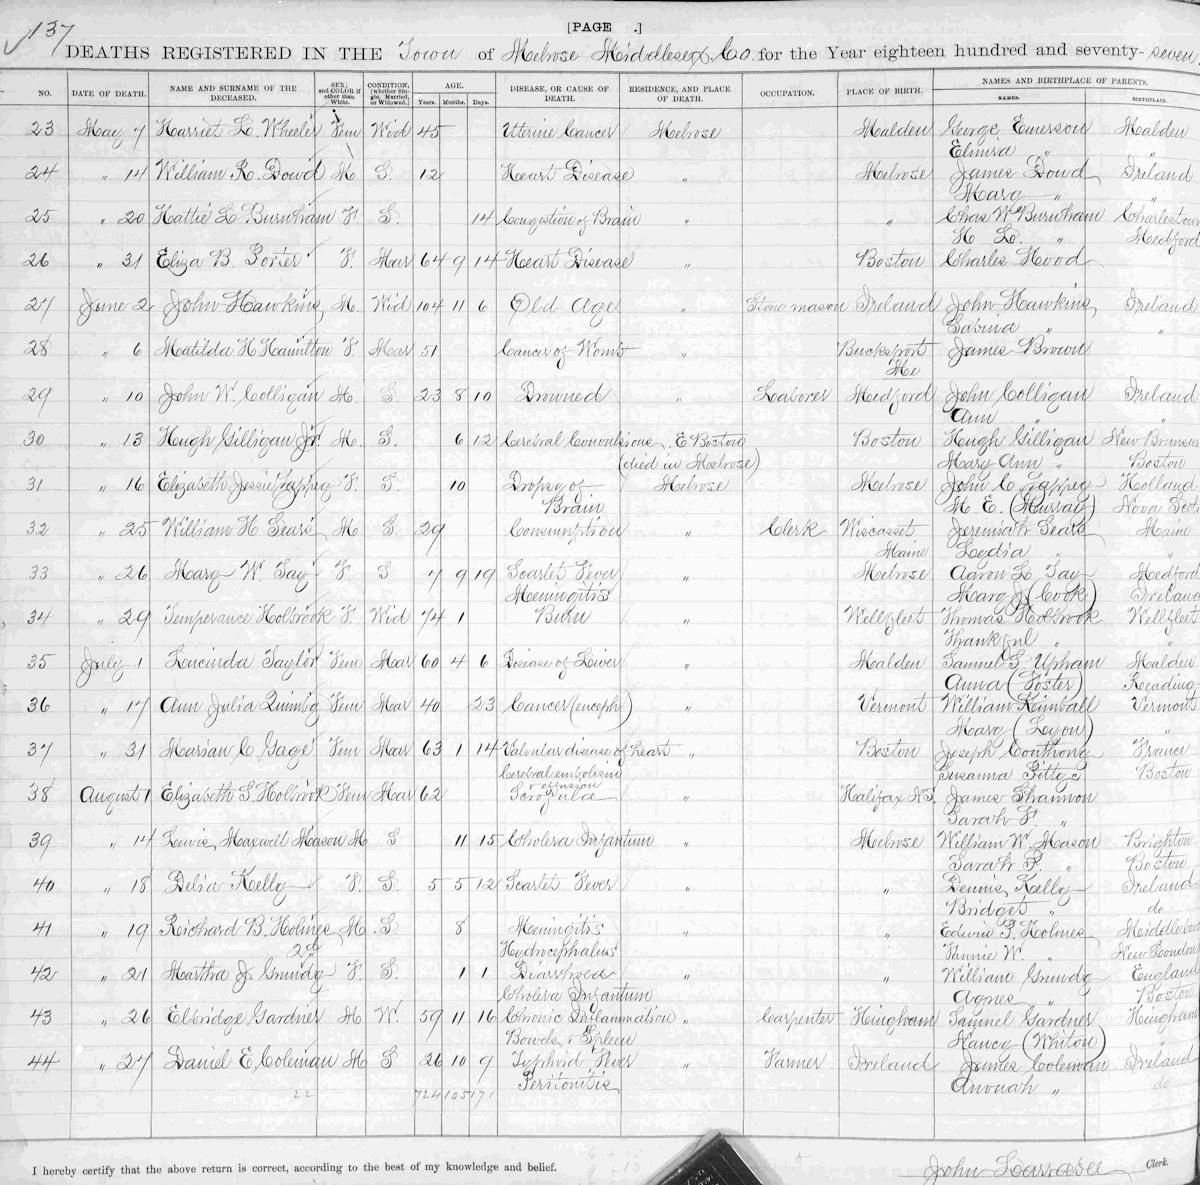 137
[PAGE .]
DEATHS REGISTERED IN THE Town of Melrose Middlesex Co. for the Year eighteen hundred and seventy-seven
NO. DATE OF DEATH. NAME AND SURNAME OF THE DECEASED. SEX; and COLOR if other than White. CONDITION, (whether Single, Married, or Widowed.) AGE. Years. Months. Days. DISEASE, OR CAUSE OF DEATH. RESIDENCE, AND PLACE OF DEATH. OCCUPATION. PLACE OF BIRTH. NAMES AND BIRTHPLACE OF PARENTS. NAMES. BIRTHPLACE.
23 May 7 Harriet L. Wheeler Fem Wid 45 Utterine Cancer Melrose Malden George Emerson Malden
Elmira " "
24 " 14 William R. Dowd M S. 12 Heart Disease " Melrose James Dowd Ireland
Mary " "
25 " 20 Hattie L Burnham F. S. 14 Congestion of Brain " " Chas W Burnham Charlestown
H L. " Medford
26 " 31 Eliza B. Porter F. Mar 64 9 14 Heart Disease " Boston Charles Hood
27 June 2 John Hawkins M. Wid 104 11 6 Old Age " Stone mason Ireland John Hawkins Ireland
Sabina " "
28 " 6 Matilda H Hamilton F. Mar 51 Cancer of Womb " Bucksport James Brown
Me
29 " 10 John W. Colligan M. S. 23 8 10 Drowned " Laborer Medford John Colligan Ireland
Ann " "
30 " 13 Hugh Gilligan Jr. M. S. 6 12 Cerebral Convulsions E Boston Boston Hugh Gilligan New Brunsw
(died in Melrose) Mary Ann " Boston
31 " 16 Elizabeth Jessie Tappey F. S. 10 Dropsy of Melrose Melrose John C Tappey Holland
Brain M E. (Murray) Nova Scoti
32 " 25 William H Sears M. S. 29 Consumption " Clerk Wiscasset Jeremiah Sears Maine
Maine Lydia " "
33 " 26 Mary W. Tay F. S 7 9 19 Scarlet Fever " Melrose Aaron L Tay Medford
Meningitis Mary J (Cook) Ireland
34 " 29 Temperance Holbrook F. Wid 74 1 Burn " Wellfleet Thomas Holbrook Wellfleet
Thankful " "
35 July 1 Lucinda Taylor Fem Mar 60 4 6 Disease of Liver " Malden Samuel S. Upham Malden
Anna (Foster) Reading
36 " 17 Ann Julia Quimby Fem Mar 40 23 Cancer (enceph) " Vermont William Kimball Vermont
Mary (Lyon) "
37 " 31 Marian C. Gage Fem Mar 63 1 14 Valvular disease of heart " Boston Joseph Couthouy France
Cerebral embolism Susanna Boston
38 August 1 Elizabeth S. Holbrook Fem Mar 62 Scrofula " Halifax N.S. James Shannon
Sarah F. "
39 " 14 Lewis Maxwell Mason M S 11 15 Cholera Infantum " Melrose William W. Mason Brighton
Sarah P. " Boston
40 " 18 Delia Kelly F. S. 5 5 12 Scarlet Fever " " Dennis Kelly Ireland
Bridget " do
41 " 19 Richard B. Holmes M. S 8 Meningitis " " Edwin P. Holmes Middlebor
2d Hydrocephalus Fannie W. " New London
42 " 21 Martha J. Grundy F. S. 1 1 Diarrhoea " " William Grundy England
Cholera Infantum Agnes " Boston
43 " 26 Elbridge Gardner M W. 59 11 16 Chronic Inflammation " Carpenter Hingham Samuel Gardner Hingham
Bowels & Spleen Nancy (Whiton) "
44 " 27 Daniel E Coleman M S 26 10 9 Typhoid Fever " Farmer Ireland James Coleman Ireland
Peritonitis " do
22 724 105 171
I hereby certify that the above return is correct, according to the best of my knowledge and belief.
John Larrabee Clerk.